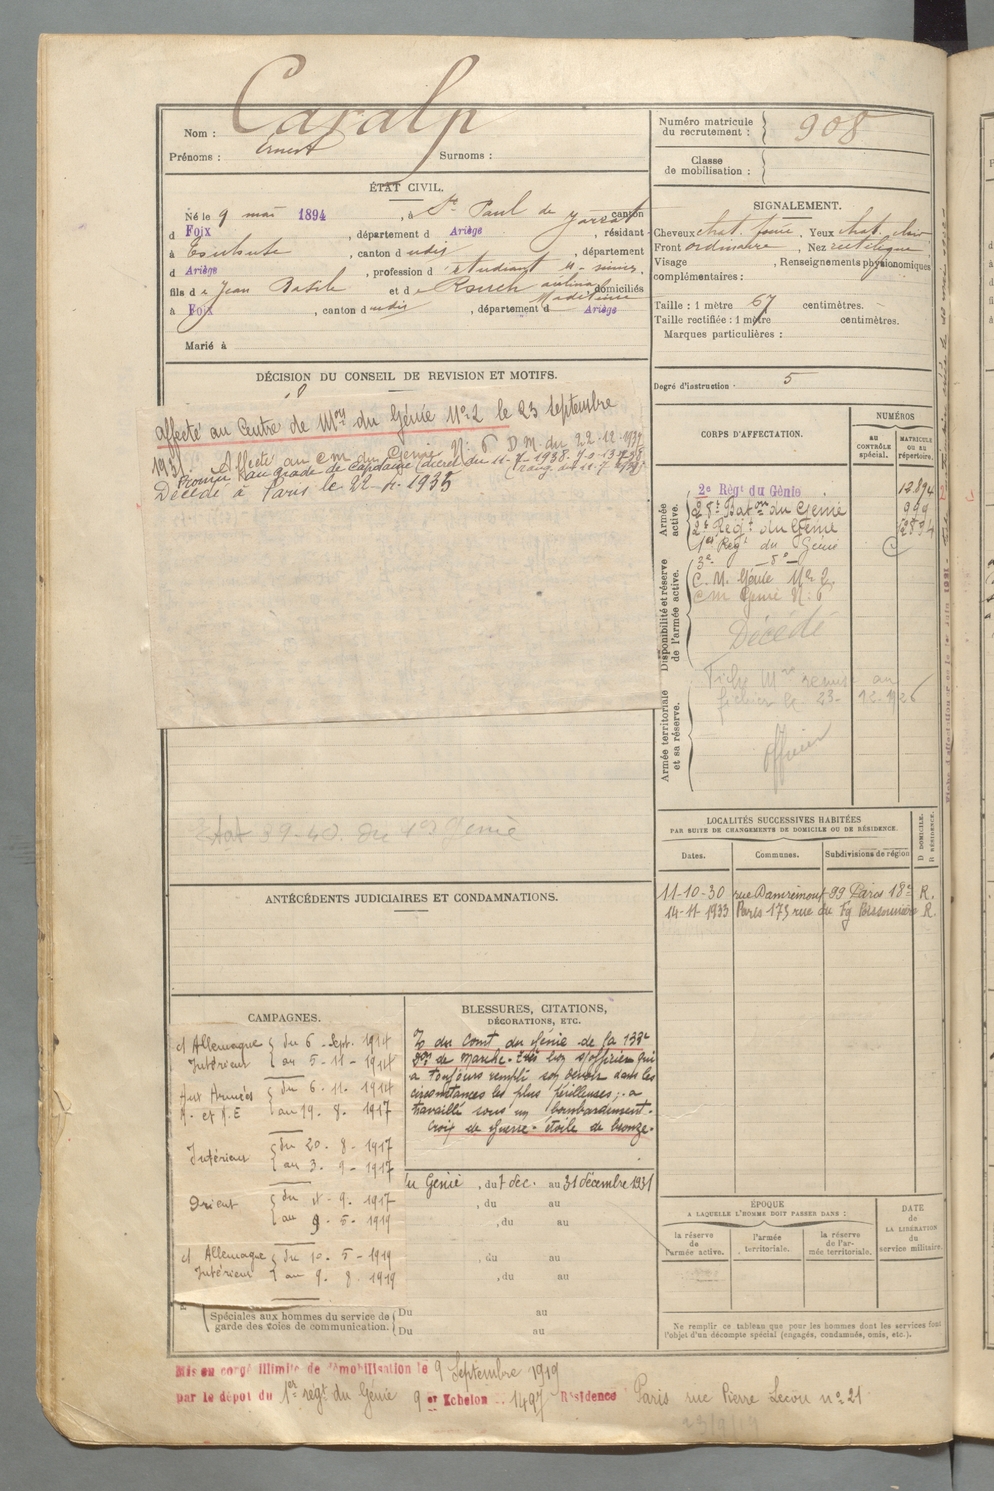 Nom : Caralp
Prénoms : Ernest Surnoms :
Numéro matricule du recrutement : 908
Classe de mobilisation :
ÉTAT CIVIL.
Né le 9 mai 1894, à St Paul de Jarrat canton
d Foix, département d Ariège, résidant
à Toulouse, canton d udis, département
d Ariège, profession d'étudiant
fils de Jean Basile et de Rouch domiciliés
à Foix, canton d udis, département d Ariège
Marié à
SIGNALEMENT.
Cheveux chat. foncé, Yeux chat. clair
Front ordinaire, Nez rectiligne
Visage , Renseignements physionomiques
complémentaires :
Taille : 1 mètre 67 centimètres.
Taille rectifiée : 1 mètre centimètres.
Marques particulières :
Degré d'instruction : 5
DÉCISION DU CONSEIL DE REVISION ET MOTIFS.
affecté au Centre de Mon du Génie No 2 le 23 septembre
1931. Affecté au C.M. du Génie No 6 D.M. du 22.12.1934
Promu au grade de Capitaine (décret du 11-7-1938. J.O. 13-7-38
Décédé à Paris le 22-11-1935
Etat 39-40. du 1er Génie
CORPS D'AFFECTATION.
NUMÉROS
AU CONTRÔLE spécial.
MATRICULE OU AU répertoire.
Armée active.
2e Régt du Génie 12.894
28e Baton du Génie 999
2e Régt du Génie 12894
1er Régt du Génie
3e -do-
Disponibilité et réserve de l'armée active.
C. M. Génie No 2.
CM Génie No 6
Décédé
Armée territoriale et sa réserve.
Fiche Mle remise au
fichier le 23-12-1926
Officier
LOCALITÉS SUCCESSIVES HABITÉES
PAR SUITE DE CHANGEMENTS DE DOMICILE OU DE RÉSIDENCE.
Dates. Communes. Subdivisions de région D DOMICILE. R RÉSIDENCE.
11-10-30 rue Damrémont 99 Paris 18e R.
14-11-1933 Paris 173 rue du Fg Poissonnière R.
ANTÉCÉDENTS JUDICIAIRES ET CONDAMNATIONS.
CAMPAGNES.
ct Allemagne Intérieur { du 6. Sept. 1914
au 5-11-1914
Aux Armées { du 6. 11. 1914
au 19. 8. 1917
Intérieur { du 20. 8-1917
au 3. 9-1917
Orient { du 4-9. 1917
au 9. 5. 1919
ct Allemagne Intérieur { du 10. 5-1919
au 9. 8. 1919
Spéciales aux hommes du service de garde des voies de communication. { Du au
Du au
BLESSURES, CITATIONS,
DÉCORATIONS, ETC.
du Comt du Génie de la 133e
Don de Marche. Très bon s/officier qui
a toujours rempli son devoir dans les
circonstances les plus périlleuses ; a
travaillé sous un bombardement.
Croix de guerre. étoile de bronze.
Génie, du 7 dec. au 31 décembre 1931
, du au
, du au
, du au
, du au
ÉPOQUE
A LAQUELLE L'HOMME DOIT PASSER DANS :
la réserve de l'armée active.
l'armée territoriale.
la réserve de l'armée territoriale.
DATE de LA LIBÉRATION du service militaire.
Ne remplir ce tableau que pour les hommes dont les services font
l'objet d'un décompte spécial (engagés, condamnés, omis, etc.).
Mis en congé illimité de démobilisation le 9 Septembre 1919
par le dépôt du 1er régt du Génie 9 er Echelon .. 1497 Résidence Paris rue Pierre Lecou no 21
23/9/19